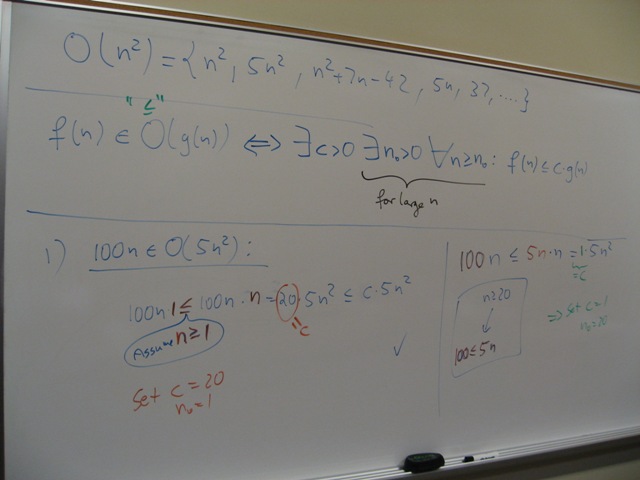 O(n²) = {n², 5n², n²+7n-42, 5n, 37, ....}
"≤"
f(n) ∈ O(g(n)) ⇔ ∃c>0 ∃n₀>0 ∀n≥n₀: f(n) ≤ c·g(n)
for large n
1) 100n ∈ O(5n²):
100n·1 ≤ 100n·n = 20·5n² ≤ c·5n²
Assume n≥1
=c
✓
Set c = 20
n₀=1
100n ≤ 5n·n = 1·5n²
=c
n≥20
↓
100≤5n
⇒ set c=1
n₀=20